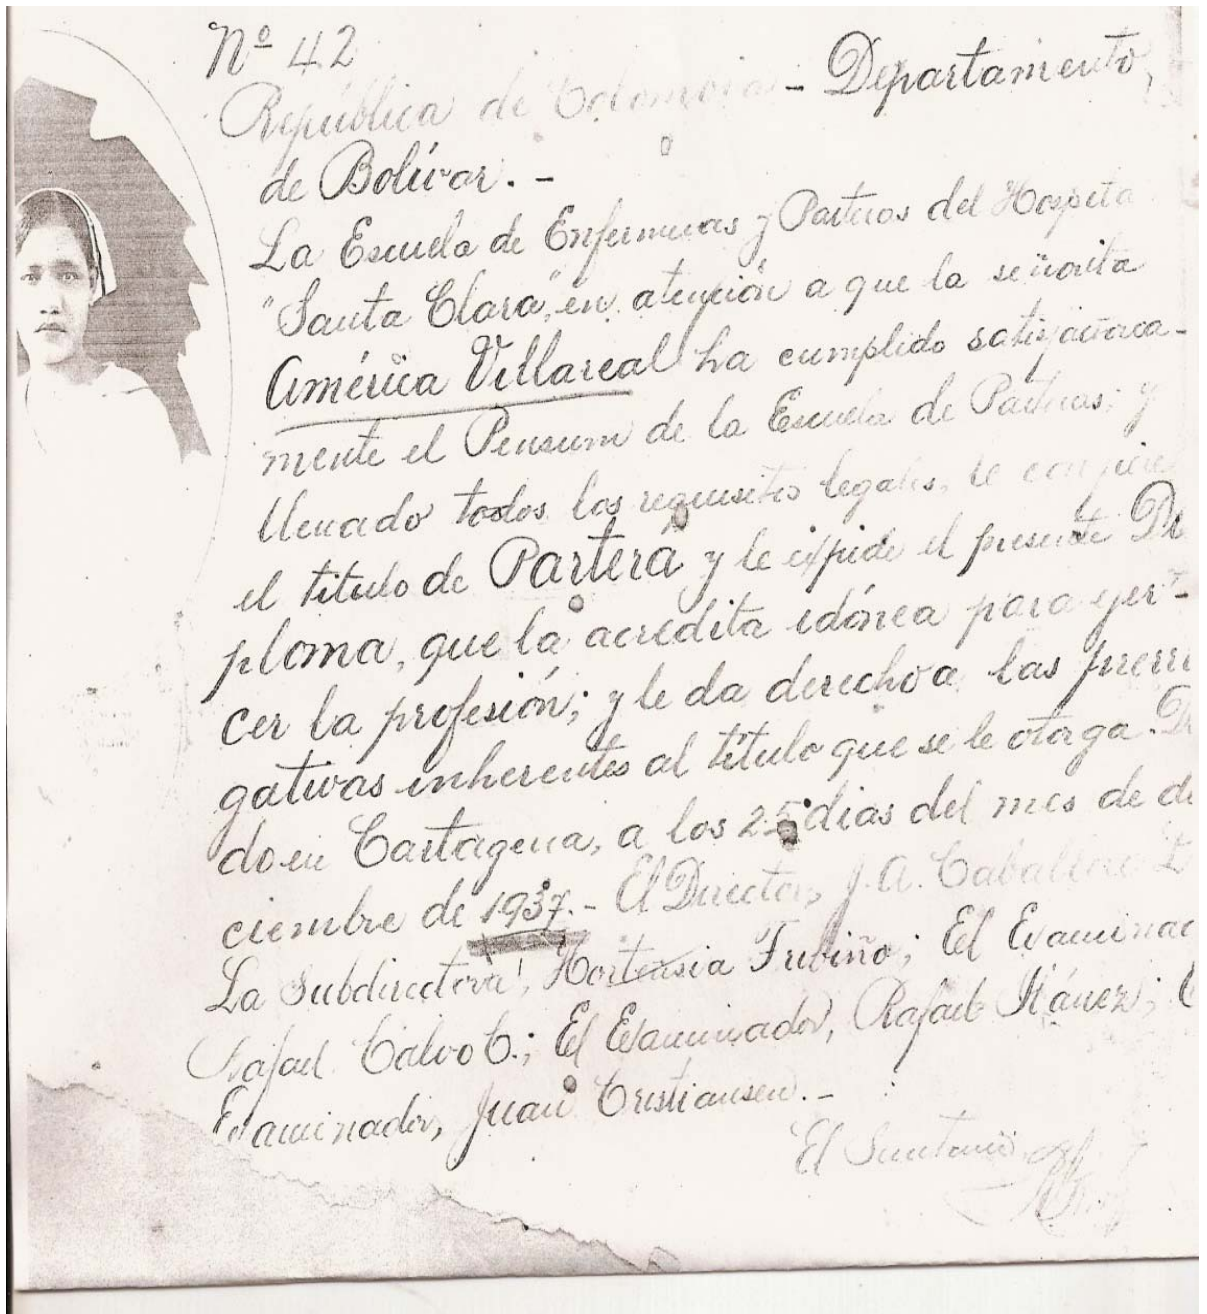 Nº 42
República de Colombia - Departamento
de Bolívar. -
La Escuela de Enfermeras y Parteras del Hospita
"Santa Clara", en atención a que la señorita
América Villareal ha cumplido satisfactoria-
mente el Pensum de la Escuela de Parteras; y
llenado todos los requisitos legales, le confiere
el título de Partera y le expide el presente Di
ploma, que la acredita idónea para ejer-
cer la profesión; y le da derecho a las prerro
gativas inherentes al título que se le otorga. Da
do en Cartagena, a los 25 dias del mes de di
ciembre de 1937. - El Director, J. A. Caballero
La Subdirectora, Hortensia Trubiño; El Examinad
Rafael Calvo C.; El Examinador, Rafael ; E
Examinador, Juan Cristiansen. -
El Secretario